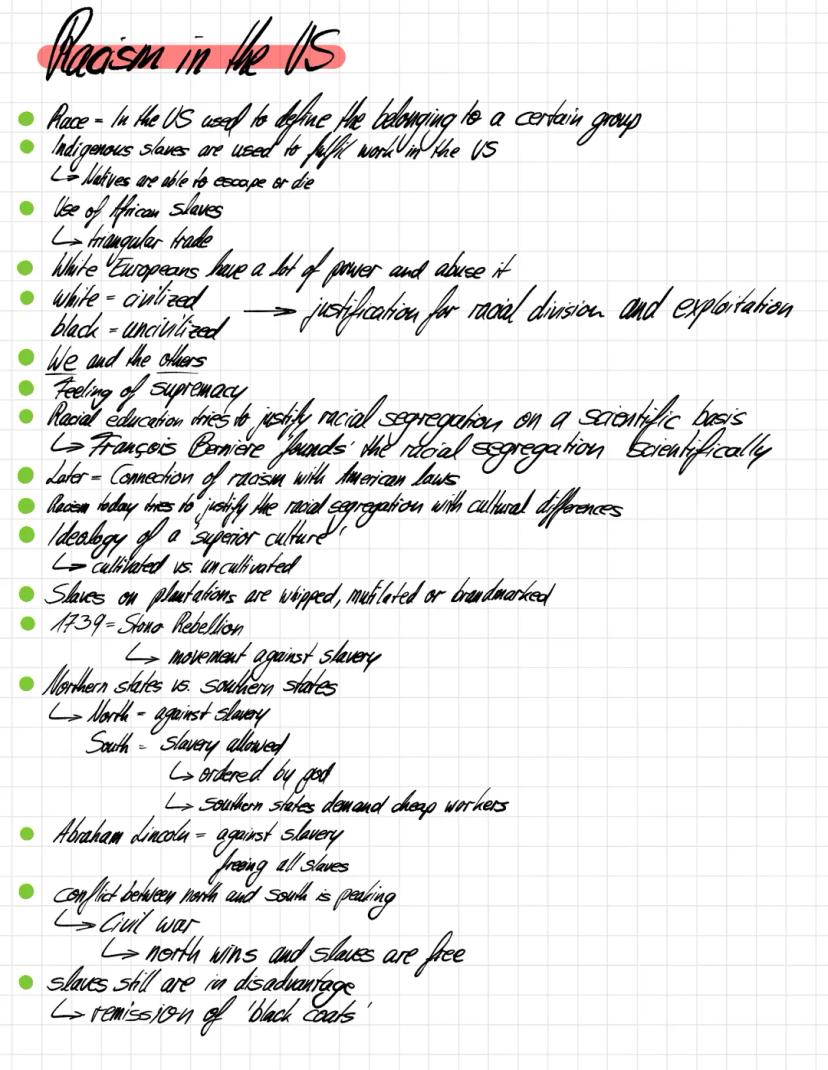 Racism in the US
Race = In the US used to define the belonging to a certain group
Indigenous slaves are used to fulfil work in the US
↳ Natives are able to escape or die
Use of African slaves
↳ triangular trade
White Europeans have a lot of power and abuse it
white = civilized → justification for racial division and exploitation
black = uncivilized
We and the others
Feeling of supremacy
Racial education tries to justify racial segregation on a scientific basis
↳ François Berniere 'founds' the racial segregation scientifically
Later = Connection of racism with American laws
Racism today tries to justify the racial segregation with cultural differences
Ideology of a "superior culture"
↳ cultivated vs. uncultivated
Slaves on plantations are whipped, mutilated or brandmarked
1739 = Stono Rebellion
↳ movement against slavery
Northern states vs. southern states
↳ North = against slavery
South = slavery allowed
↳ ordered by god
↳ southern states demand cheap workers
Abraham Lincoln = against slavery
freeing all slaves
conflict between north and south is peaking
↳ Civil war
↳ north wins and slaves are free
slaves still are in disadvantage
↳ remission of 'black coats'